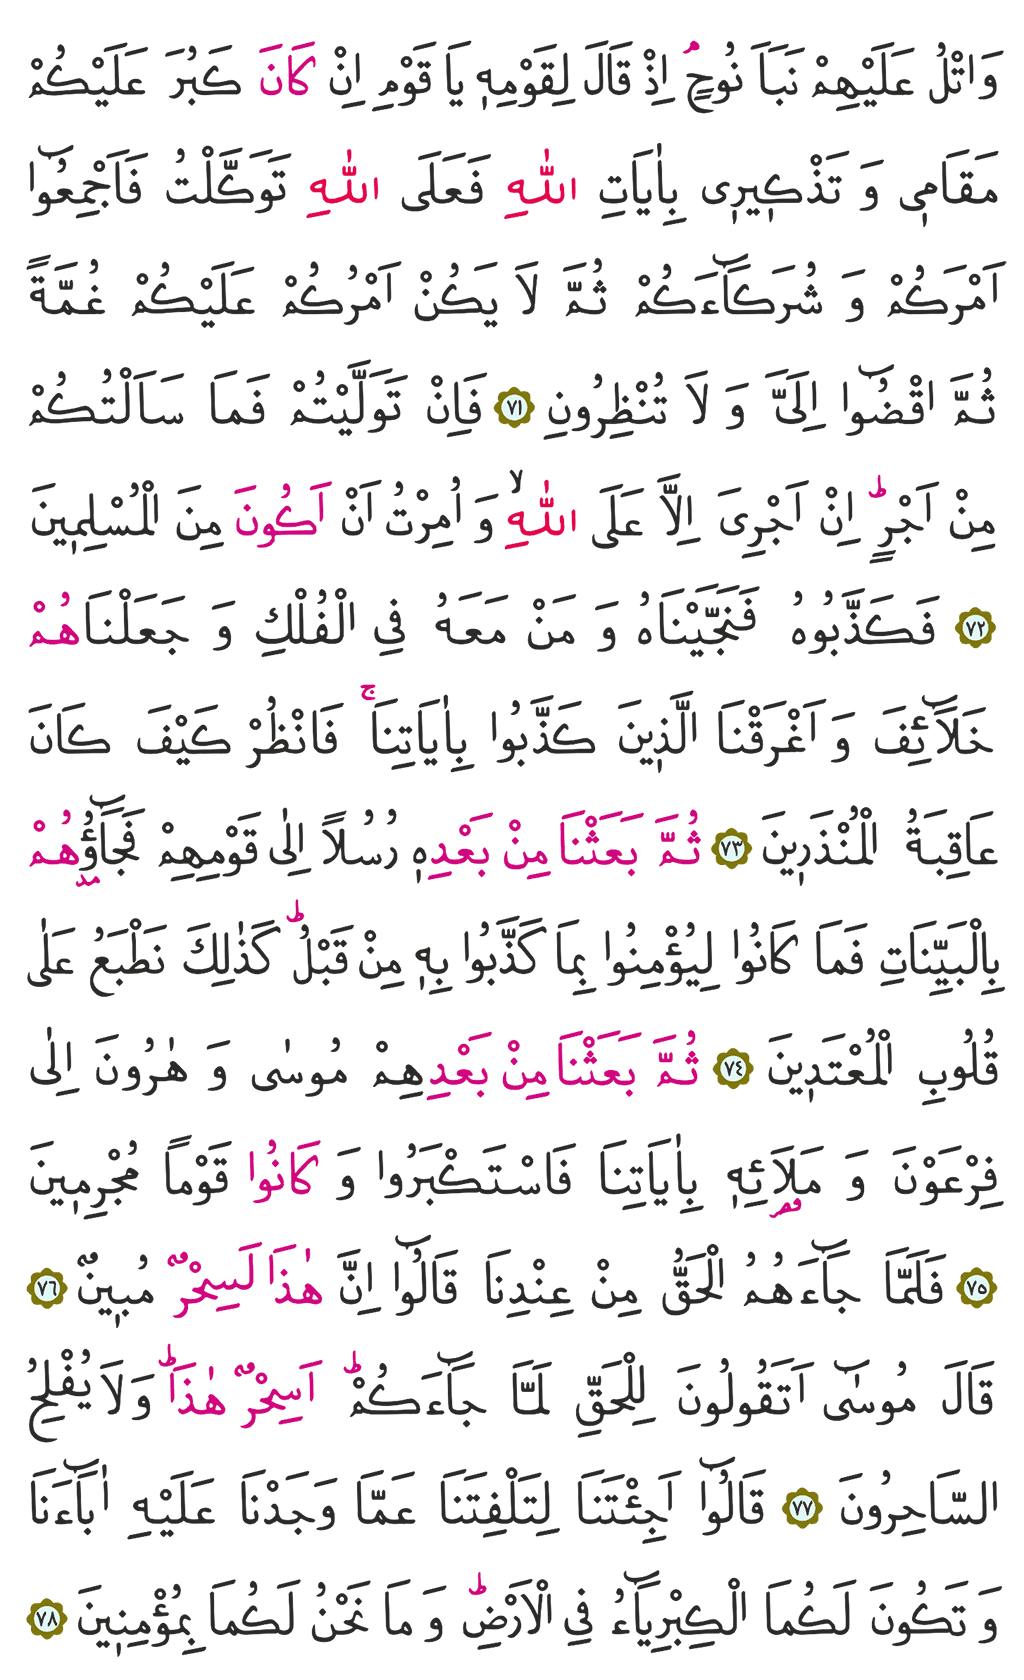 وَاتْلُ عَلَيْهِمْ نَبَاَ نُوحٍۢ اِذْ قَالَ لِقَوْمِهٖ يَا قَوْمِ اِنْ كَانَ كَبُرَ عَلَيْكُمْ
مَقَامٖى وَ تَذْكٖيرٖى بِاٰيَاتِ اللّٰهِ فَعَلَى اللّٰهِ تَوَكَّلْتُ فَاَجْمِعُٓوا
اَمْرَكُمْ وَ شُرَكَٓاءَكُمْ ثُمَّ لَا يَكُنْ اَمْرُكُمْ عَلَيْكُمْ غُمَّةً
ثُمَّ اقْضُٓوا اِلَىَّ وَ لَا تُنْظِرُونِ ٧١ فَاِنْ تَوَلَّيْتُمْ فَمَا سَاَلْتُكُمْ
مِنْ اَجْرٍؕ اِنْ اَجْرِىَ اِلَّا عَلَى اللّٰهِۙ وَ اُمِرْتُ اَنْ اَكُونَ مِنَ الْمُسْلِمٖينَ
٧٢ فَكَذَّبُوهُ فَنَجَّيْنَاهُ وَ مَنْ مَعَهُ فِى الْفُلْكِ وَ جَعَلْنَاهُمْ
خَلَٓائِفَ وَ اَغْرَقْنَا الَّذٖينَ كَذَّبُوا بِاٰيَاتِنَاۚ فَانْظُرْ كَيْفَ كَانَ
عَاقِبَةُ الْمُنْذَرٖينَ ٧٣ ثُمَّ بَعَثْنَا مِنْ بَعْدِهٖ رُسُلًا اِلٰى قَوْمِهِمْ فَجَٓاؤُهُمْ
بِالْبَيِّنَاتِ فَمَا كَانُوا لِيُؤْمِنُوا بِمَا كَذَّبُوا بِهٖ مِنْ قَبْلُؕ كَذٰلِكَ نَطْبَعُ عَلٰى
قُلُوبِ الْمُعْتَدٖينَ ٧٤ ثُمَّ بَعَثْنَا مِنْ بَعْدِهِمْ مُوسٰى وَ هٰرُونَ اِلٰى
فِرْعَوْنَ وَ مَلَائِهٖ بِاٰيَاتِنَا فَاسْتَكْبَرُوا وَ كَانُوا قَوْمًا مُجْرِمٖينَ
٧٥ فَلَمَّا جَٓاءَهُمُ الْحَقُّ مِنْ عِنْدِنَا قَالُٓوا اِنَّ هٰذَا لَسِحْرٌ مُبٖينٌ ٧٦
قَالَ مُوسٰٓى اَتَقُولُونَ لِلْحَقِّ لَمَّا جَٓاءَكُمْؕ اَسِحْرٌ هٰذَاؕ وَلَا يُفْلِحُ
السَّاحِرُونَ ٧٧ قَالُٓوا اَجِئْتَنَا لِتَلْفِتَنَا عَمَّا وَجَدْنَا عَلَيْهِ اٰبَٓاءَنَا
وَ تَكُونَ لَكُمَا الْكِبْرِيَٓاءُ فِى الْاَرْضِؕ وَ مَا نَحْنُ لَكُمَا بِمُؤْمِنٖينَ ٧٨